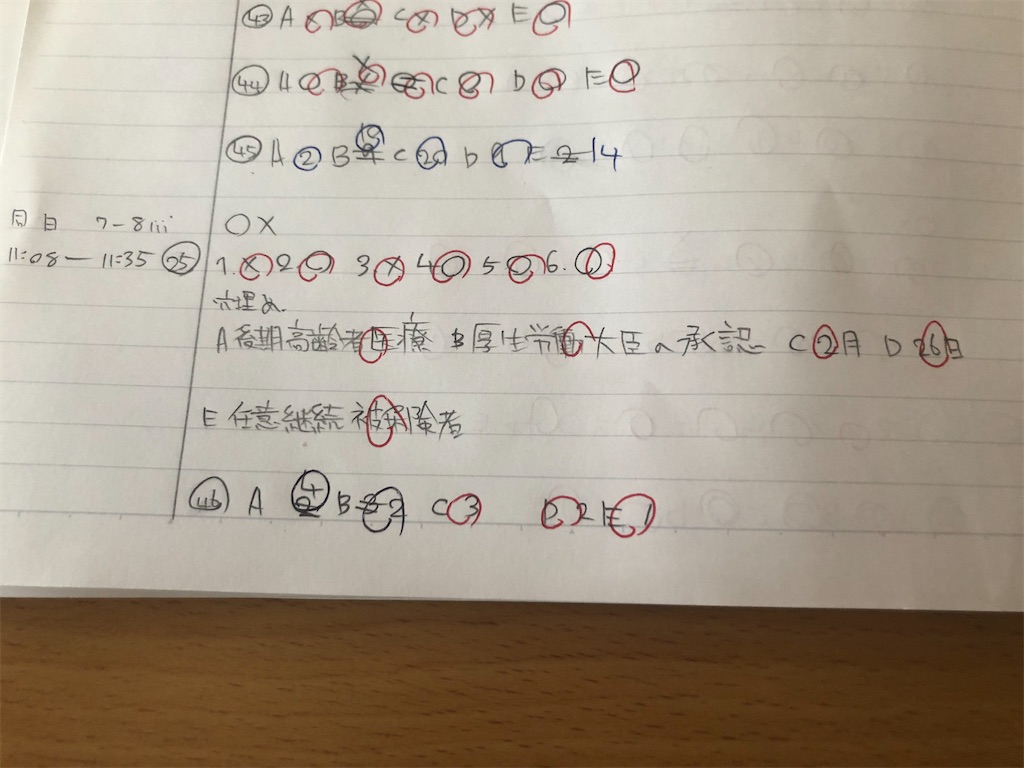 43 A ○ B C × D × E ○
44 A ○ B × C ○ D ○ E ○
45 A 2 B 19 C 20 D E 2 14
月日 7-8iii ○×
11:08 — 11:35 25 1. × 2 ○ 3 × 4 ○ 5 ○ 6. ○
穴埋め
A 後期高齢者医療 B 厚生労働大臣の承認 C 2月 D 26日
E 任意継続被保険者
46 A 4 B 2 C 3 D 2 E 1